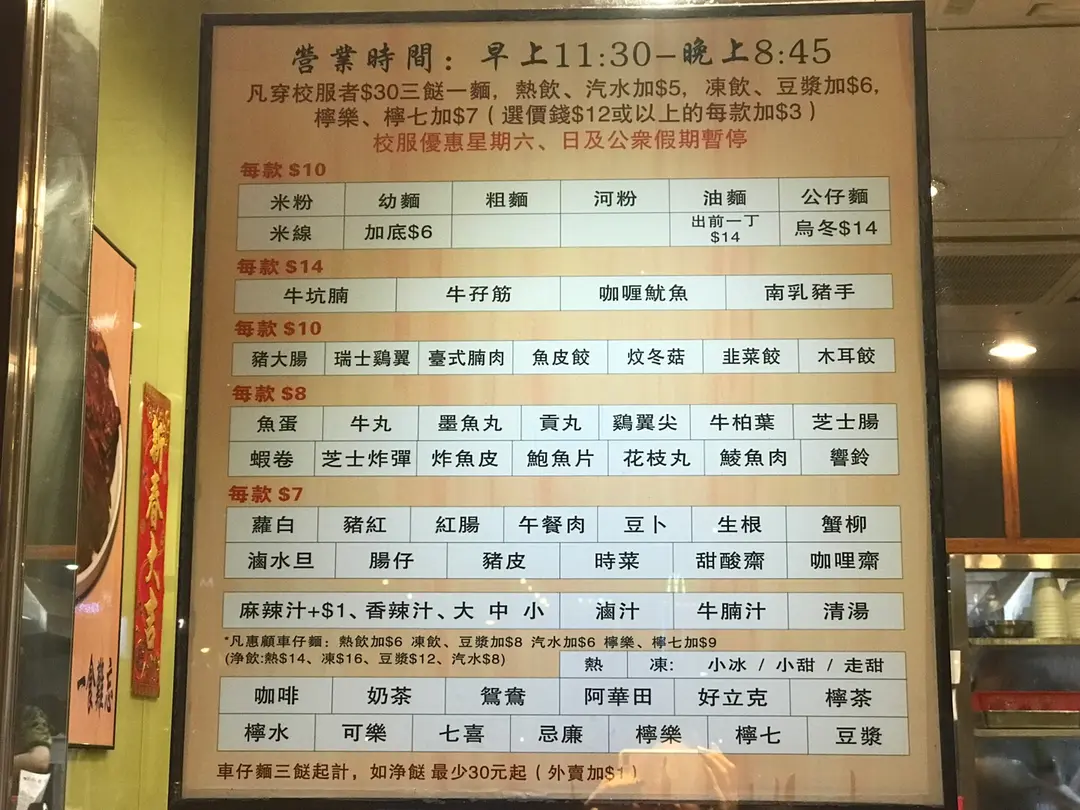 營業時間：早上11:30-晚上8:45
凡穿校服者$30三餸一麵，熱飲、汽水加$5，凍飲、豆漿加$6，
檸樂、檸七加$7（選價錢$12或以上的每款加$3）
校服優惠星期六、日及公衆假期暫停
每款 $10
米粉 幼麵 粗麵 河粉 油麵 公仔麵
米線 加底$6 出前一丁$14 烏冬$14
每款 $14
牛坑腩 牛孖筋 咖喱魷魚 南乳豬手
每款 $10
豬大腸 瑞士鷄翼 臺式腩肉 魚皮餃 炆冬菇 韭菜餃 木耳餃
每款 $8
魚蛋 牛丸 墨魚丸 貢丸 鷄翼尖 牛柏葉 芝士腸
蝦卷 芝士炸彈 炸魚皮 鮑魚片 花枝丸 鯪魚肉 響鈴
每款 $7
蘿白 豬紅 紅腸 午餐肉 豆卜 生根 蟹柳
滷水旦 腸仔 豬皮 時菜 甜酸齋 咖哩齋
麻辣汁+$1、香辣汁、大 中 小 滷汁 牛腩汁 清湯
*凡惠顧車仔麵：熱飲加$6 凍飲、豆漿加$8 汽水加$6 檸樂、檸七加$9
(淨飲:熱$14、凍$16、豆漿$12、汽水$8)
熱 凍: 小冰 / 小甜 / 走甜
咖啡 奶茶 鴛鴦 阿華田 好立克 檸茶
檸水 可樂 七喜 忌廉 檸樂 檸七 豆漿
車仔麵三餸起計，如淨餸 最少30元起（外賣加$1）
新春大吉
一食難忘